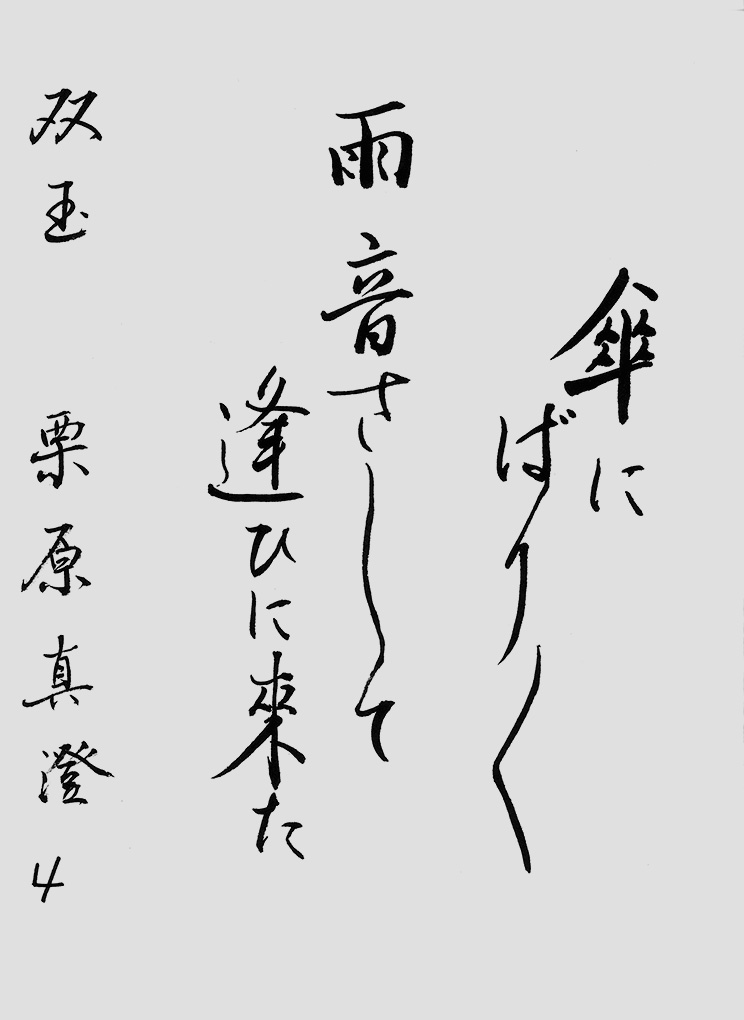 傘に
ばり〱
雨音さして
逢ひに来た
双玉 栗原真澄 4